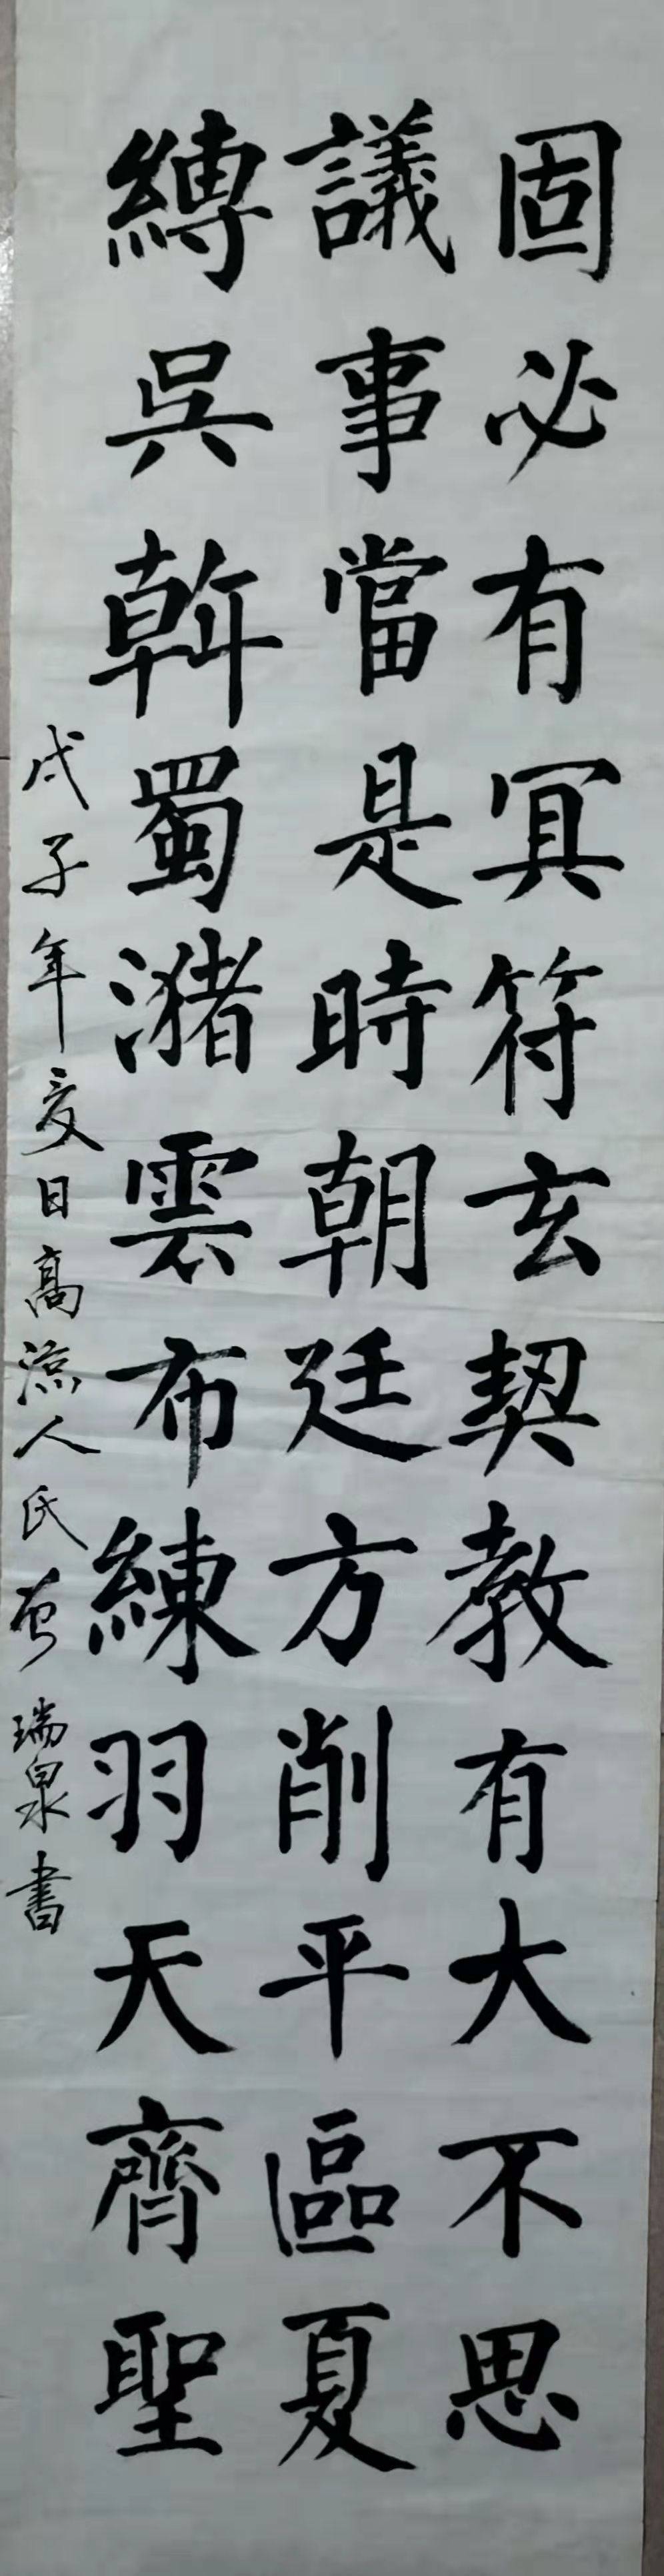 固必有冥符玄契教有大不思
議事當是時朝廷方削平區夏
縛吳斡蜀潴雲布練羽天齊聖
戊子年夏日高涼人氏瑞泉書